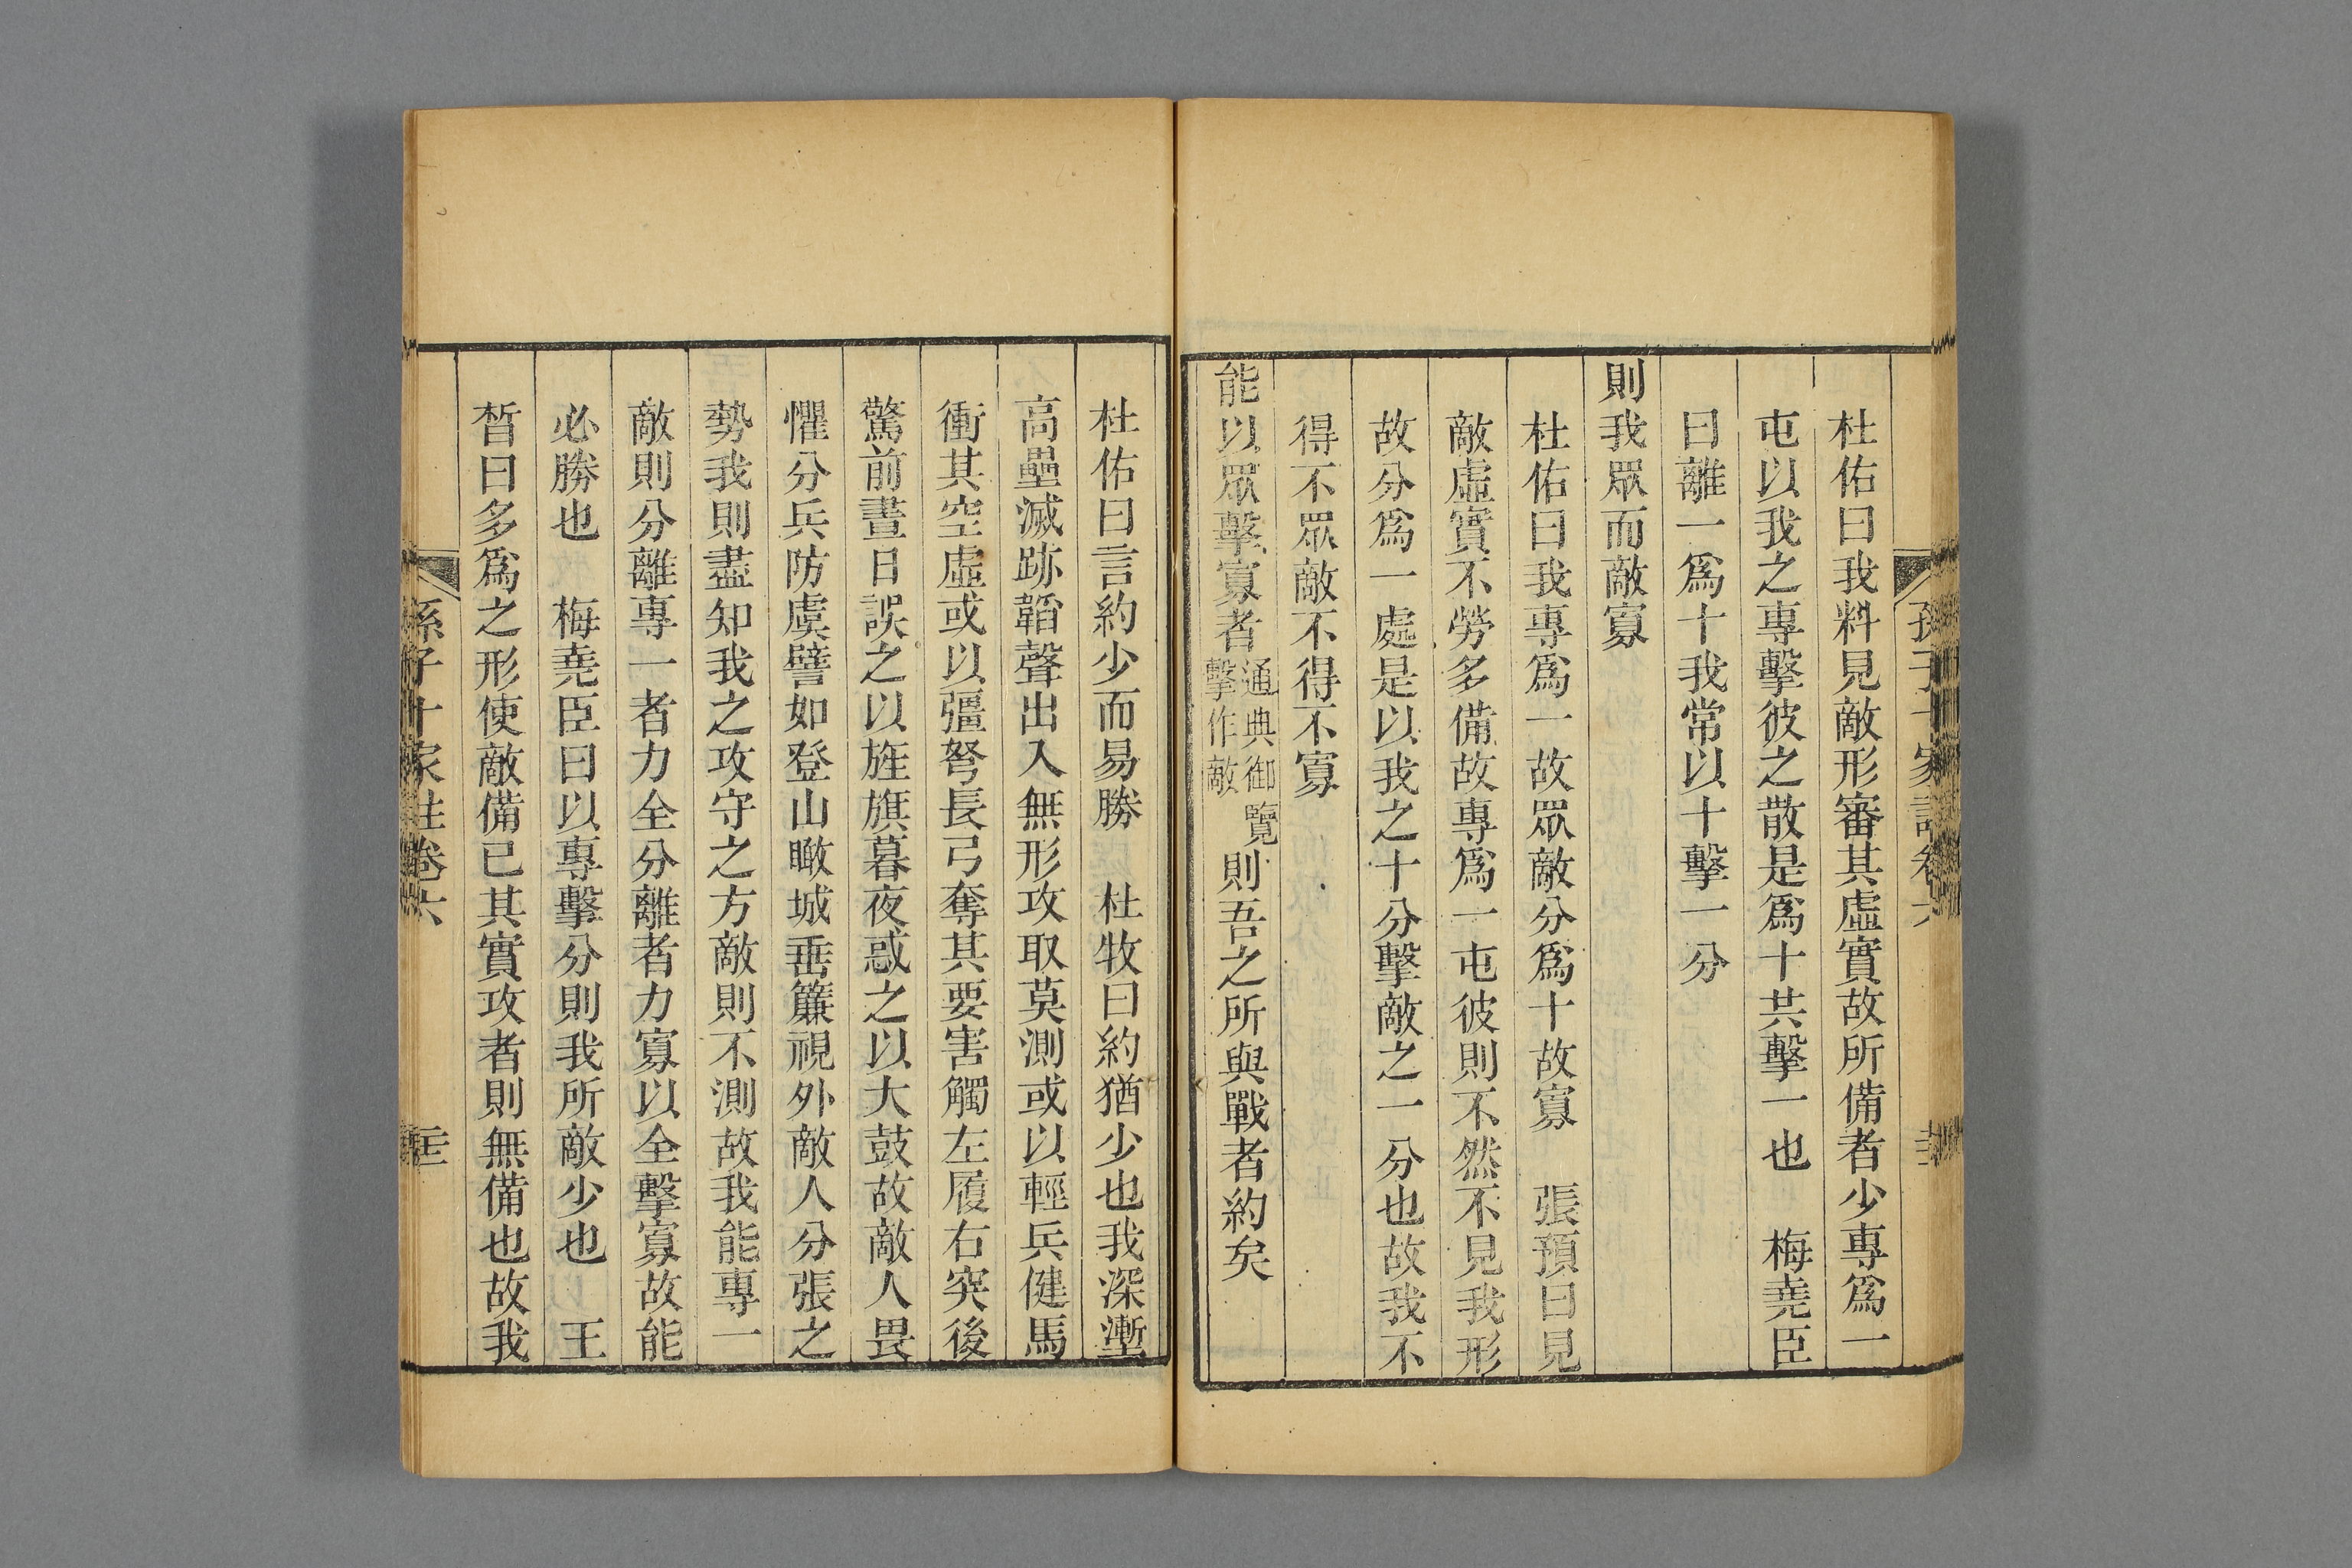 孫子十家註卷六
杜佑曰我料見敵形審其虛實故所備者少專爲一
屯以我之專擊彼之散是爲十共擊一也　梅堯臣
曰離一爲十我常以十擊一分
則我眾而敵寡
杜佑曰我專爲一故眾敵分爲十故寡　張預曰見
敵虛實不勞多備故專爲一屯彼則不然不見我形
故分爲一處是以我之十分擊敵之一分也故我不
得不眾敵不得不寡
能以眾擊寡者通典御覽擊作敵則吾之所與戰者約矣
杜佑曰言約少而易勝　杜牧曰約猶少也我深塹
高壘滅跡韜聲出入無形攻取莫測或以輕兵健馬
衝其空虛或以彊弩長弓奪其要害觸左履右突後
驚前晝日誤之以旌旗暮夜惑之以大鼓故敵人畏
懼分兵防虞譬如登山瞰城垂簾視外敵人分張之
勢我則盡知我之攻守之方敵則不測故我能專一
敵則分離專一者力全分離者力寡以全擊寡故能
必勝也　梅堯臣曰以專擊分則我所敵少也　王
晳曰多爲之形使敵備已其實攻者則無備也故我
孫子十家註卷六